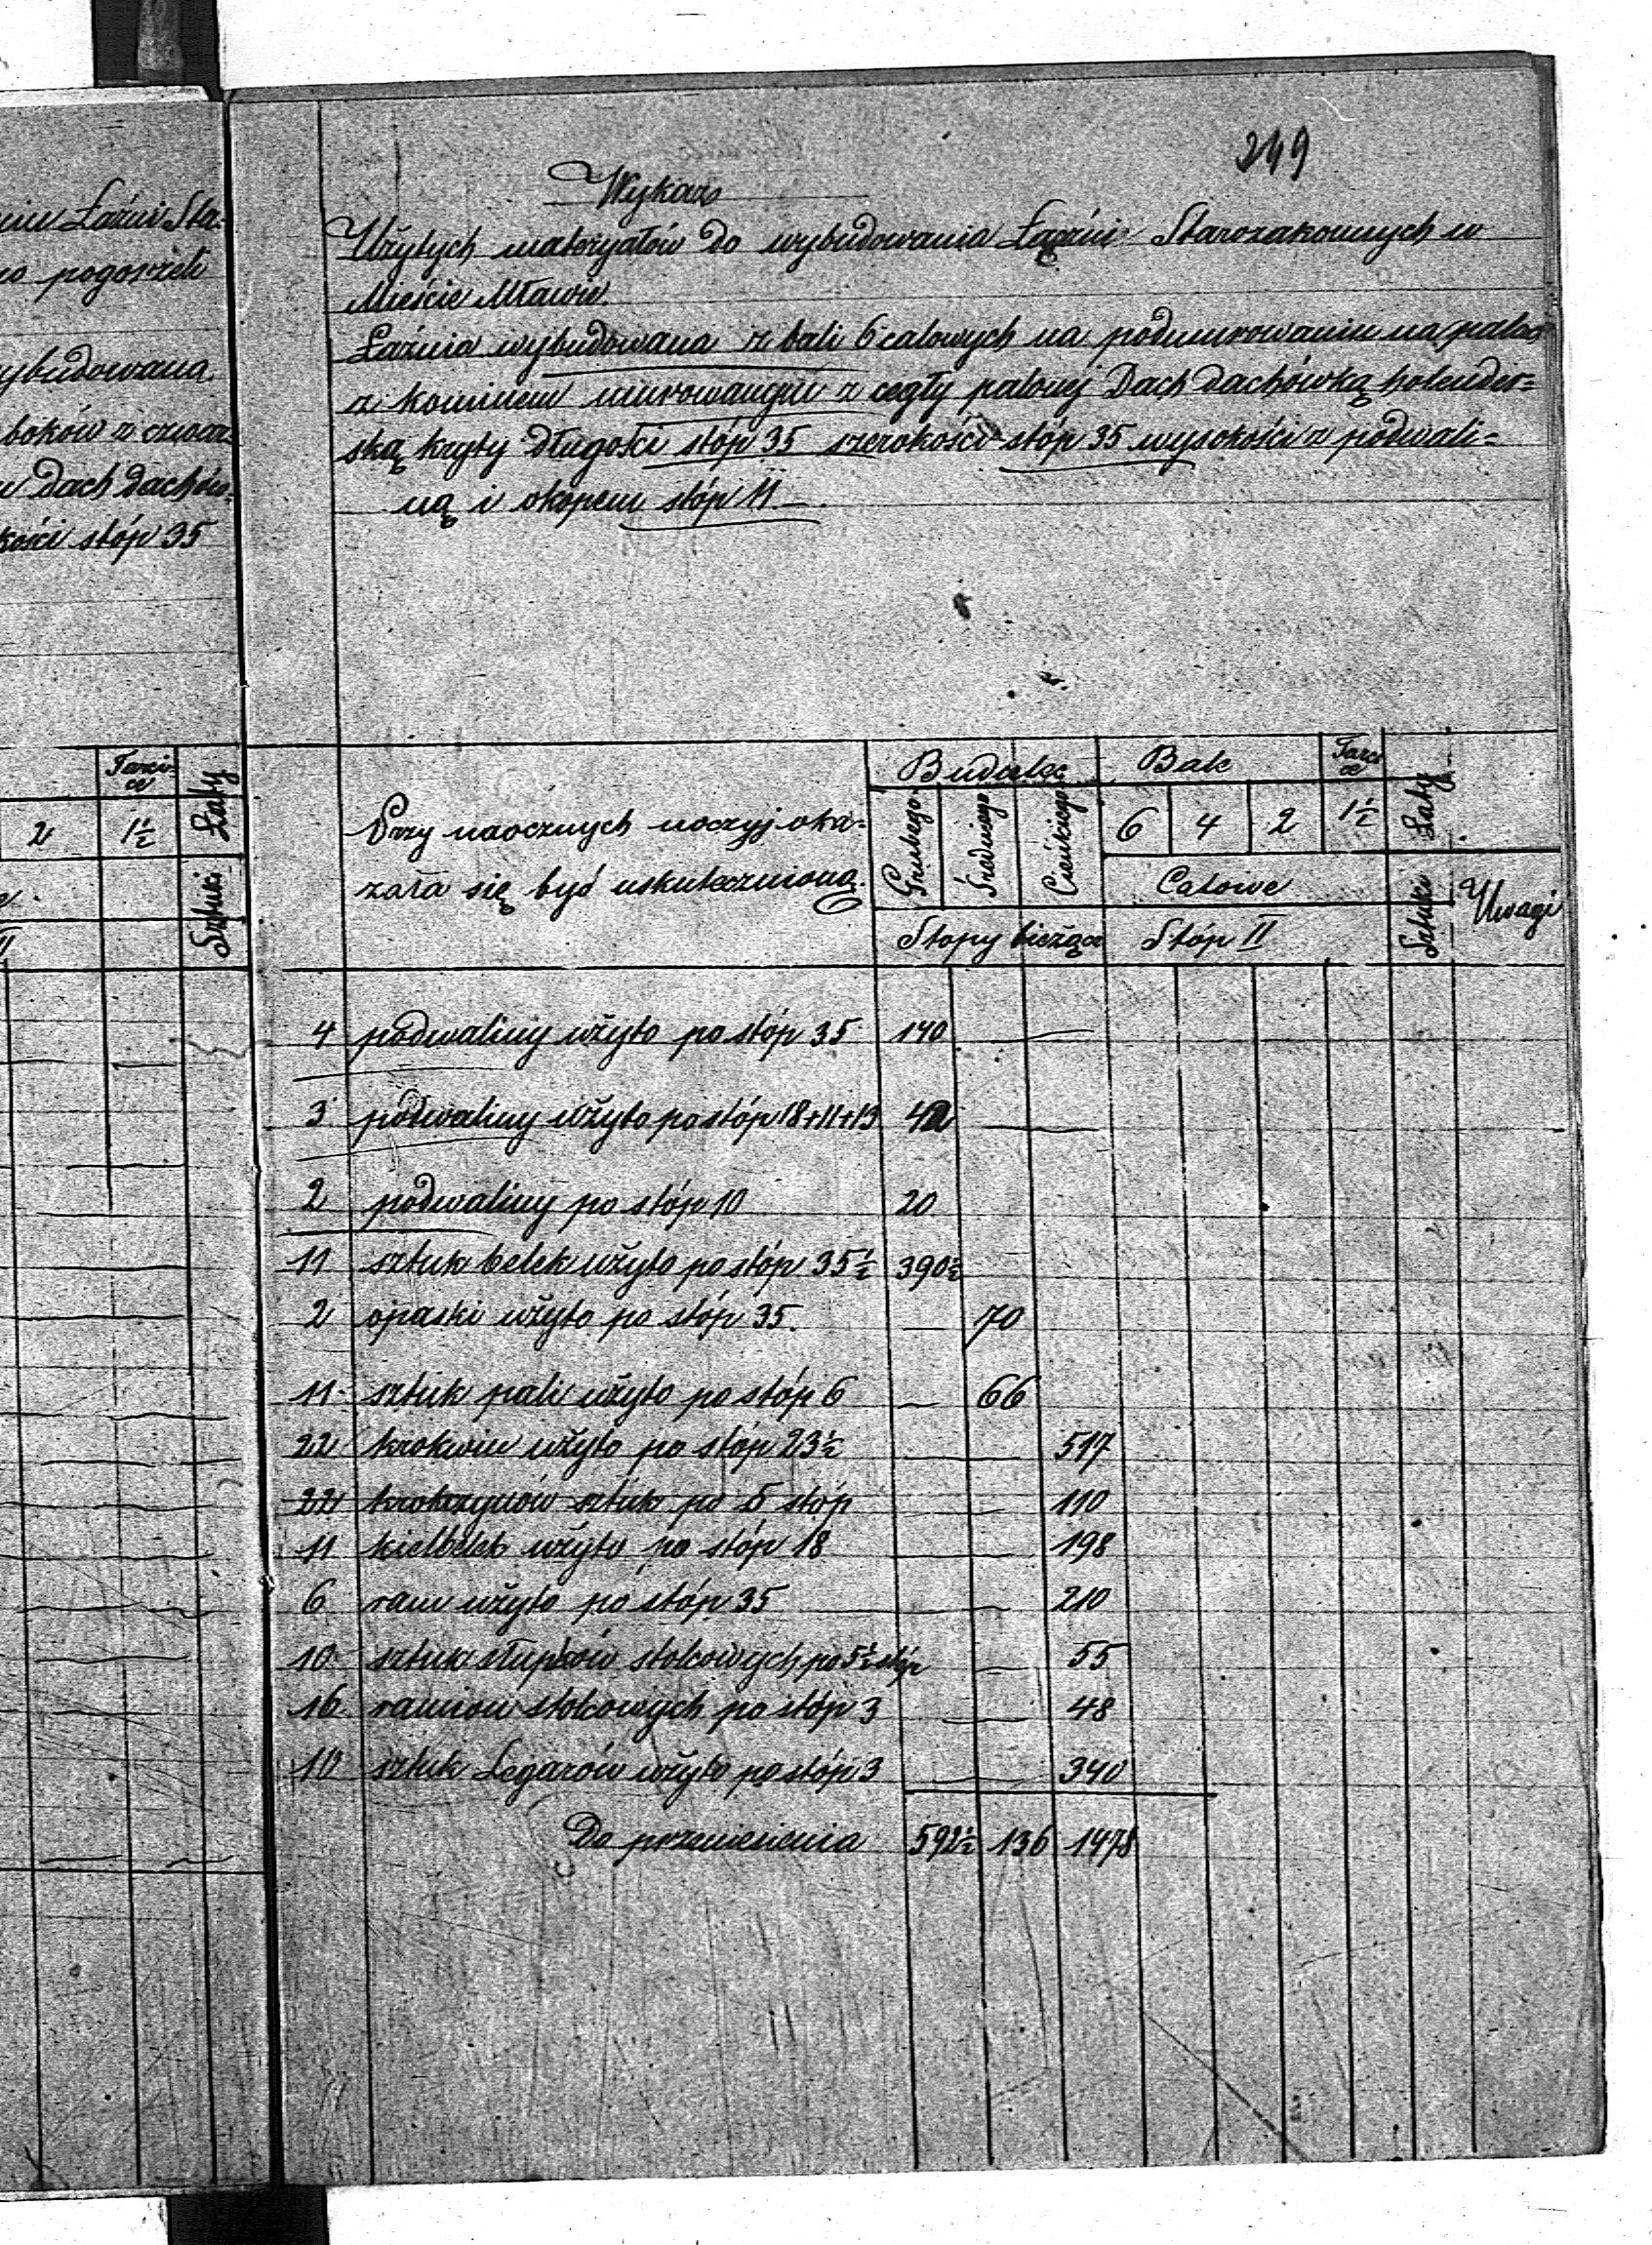 niu Łaźni Sta-
pogorzeli
ybudowana
boków z czwor
Dach dachów-
kości stóp 35
Tarci-
ce
Łaty
2 1½
Sztuki
249
Wykaz
Użytych materyałów do wybudowania Łaźni Starozakonnych w
Mieście Mławie.
Łaźnia wybudowana z bali 6 calowych na podmurowaniu na palach
z kominem murowanym z cegły palonej Dach dachówką holender=
ską kryty długości stóp 35 szerokości stóp 35 wysokości z podwali=
ną i okopem stóp 11.—
Przy naocznych oka-
zała się być uskuteczniona
Budulcu Bale Tarci
ce
Grubego Średniego Cieńkiego 6 4 2 1½ Łaty
Calowe
Stopy bieżące Stóp II Sztuki Uwagi
4 podwaliny użyto po stóp 35 140 —
3 podwaliny użyto po stóp 18+11+13 42 —
2 podwaliny po stóp 10 20
11 sztuk belek użyto po stóp 35½ 390½
2 opaski użyto po stóp 35. — 70
11 sztuk pali użyto po stóp 6 — 66
22 krokwie użyto po stóp 23½ — — 517
22 sztuk po 5 stóp — 110
11 użyto po stóp 18 — — 198
6 ram użyto po stóp 35 — — 210
10 sztuk słupków stolcowych po 5½ stóp — 55
16 ramion stolcowych po stóp 3 — 48
10 sztuk Legarów użyto po stóp 3 — — 340
Do przeniesienia 592½ 136 1478